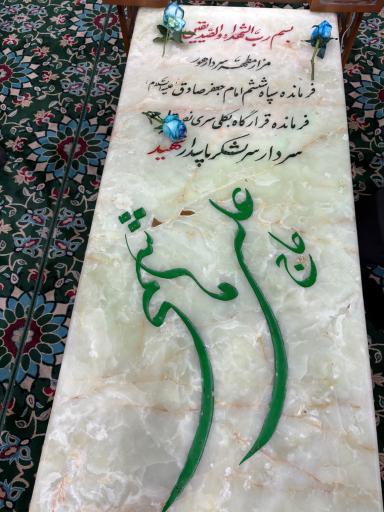 بسم رب الشهداء والصدیقین
مزار مطهر سردار هور
فرمانده سپاه ششم امام جعفر صادق علیه‌السلام
فرمانده قرارگاه سری نص
سردار سرلشکر پاسدار شهید
حاج علی هاشمی